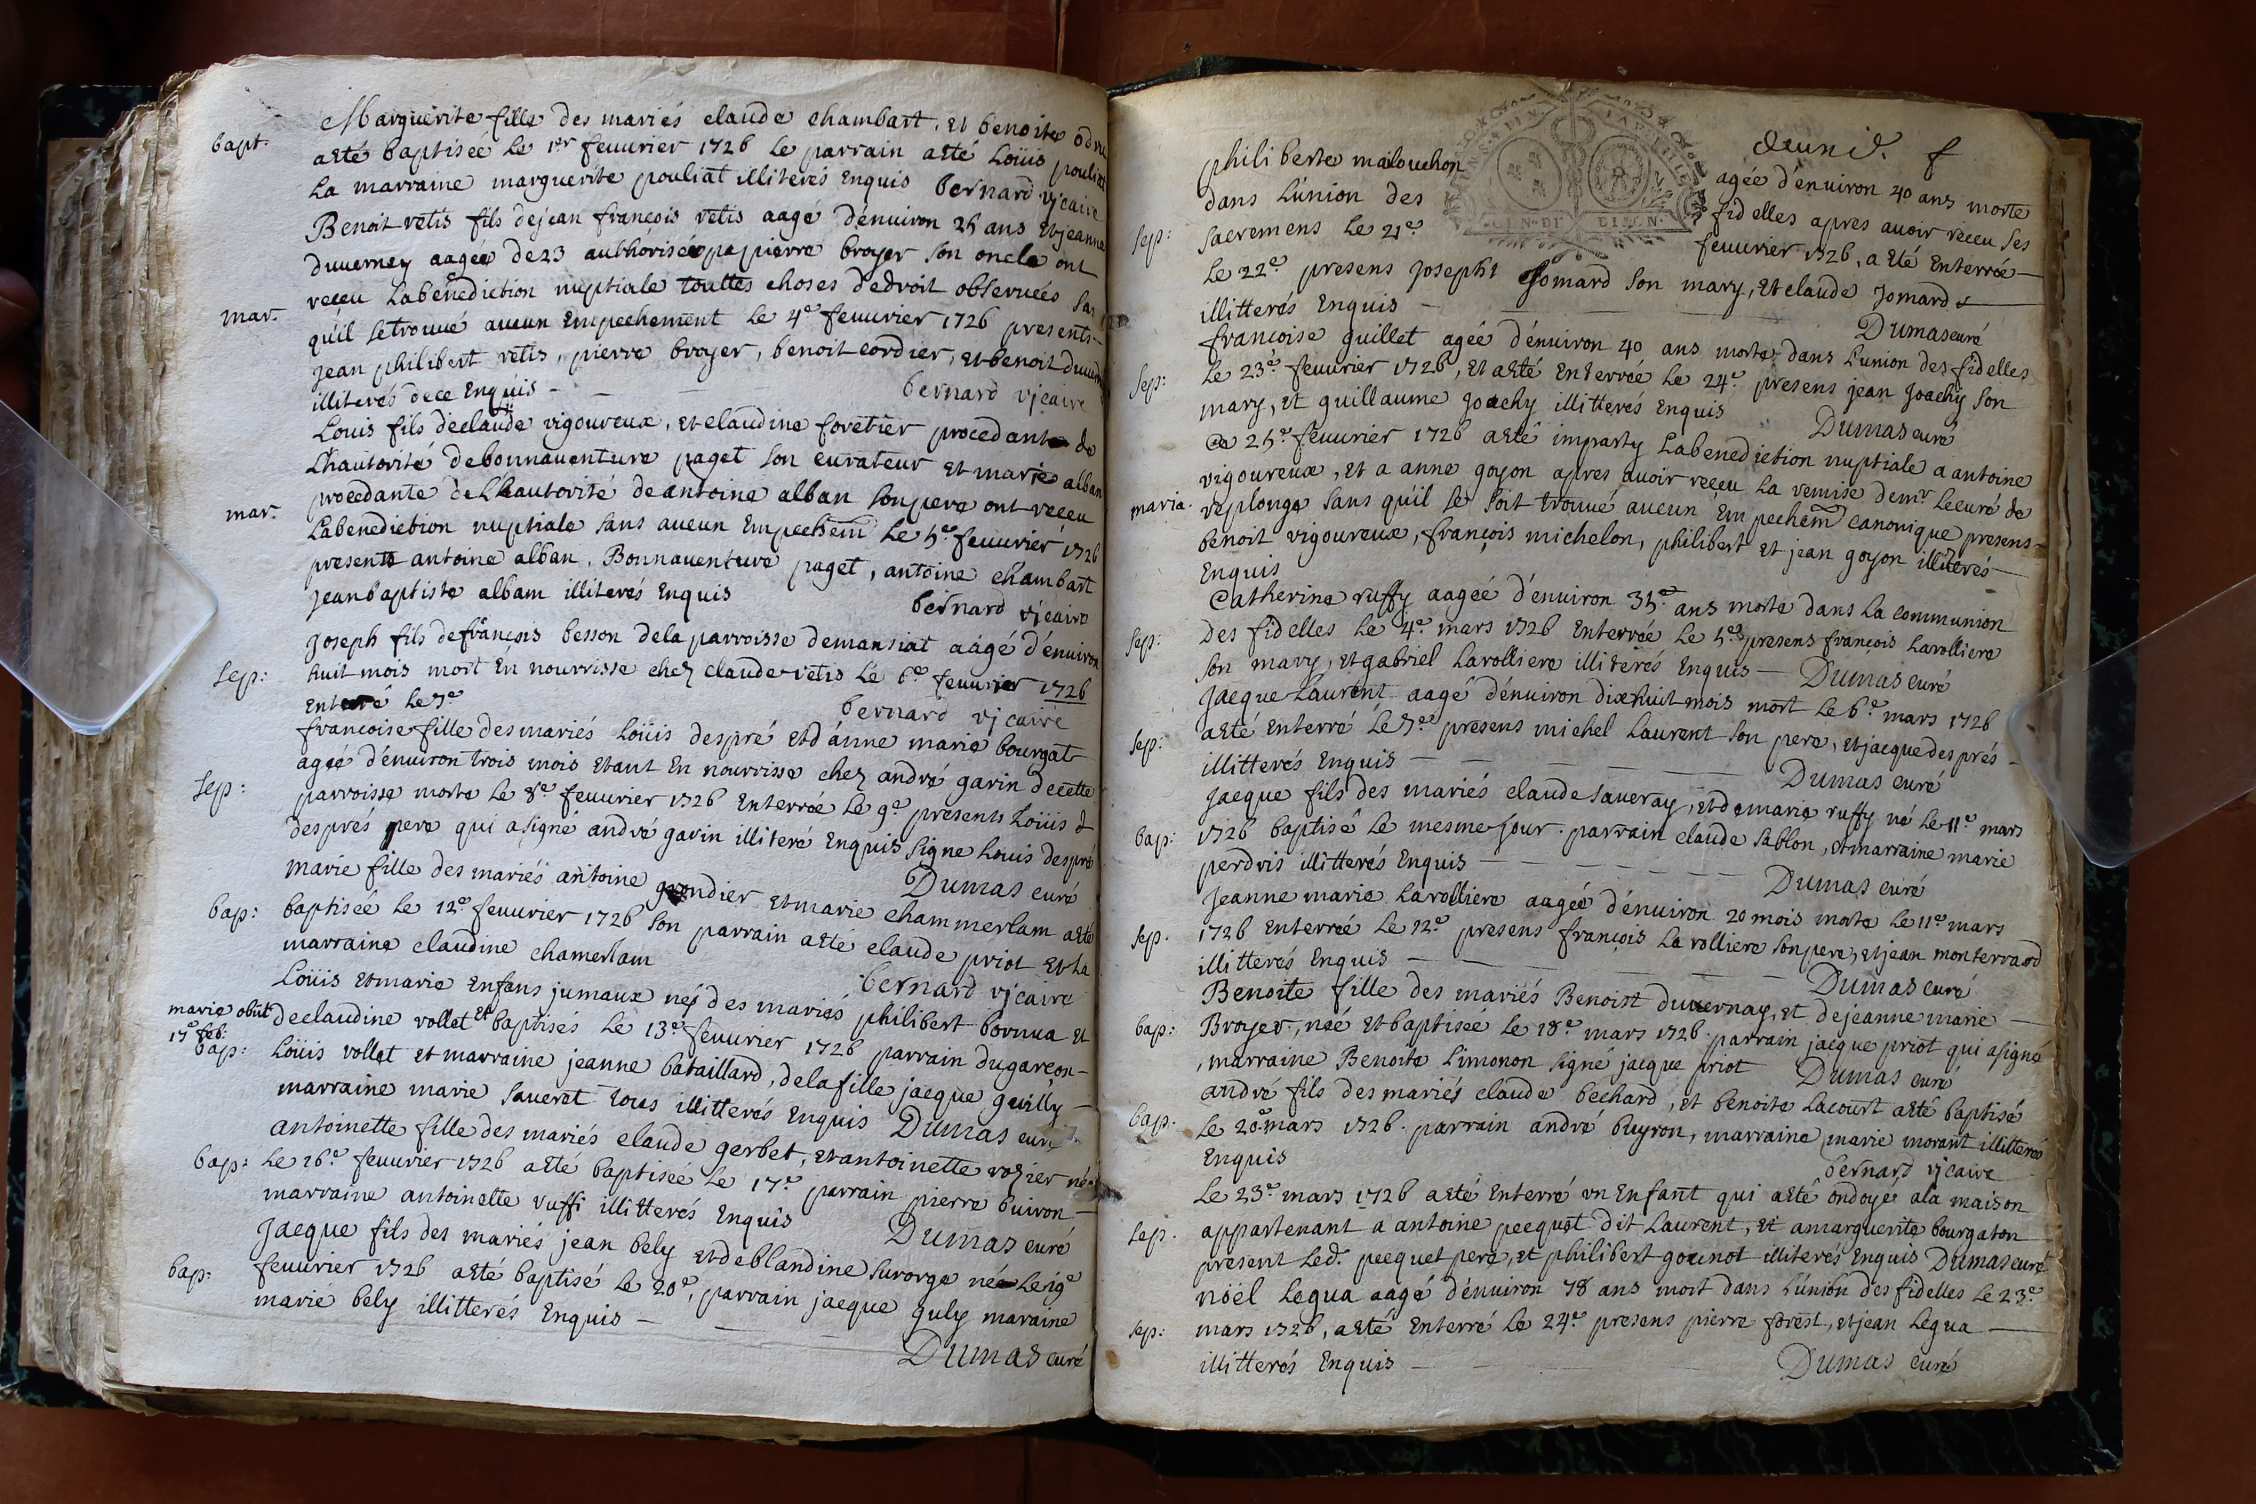 Marguerite fille des mariés claude chambart, Et benoite odru
bapt. aEté baptiséé Le 1er feuurier 1726 Le parrain aEté Loüis pouliat
La marraine marguerite pouliat illiterés Enquis bernard vjcaire
Benoit vetis fils dejean françois vetis aagé d'énuiron 25 ans Et jeanne
duuerney aagéé de 23 authorisée pa pierre broyer son oncle ont
receu Labénédiction nuptiale touttes choses dedroit obseruéés sa
mar. qu'il setrouué aucun Empechement Le 4e feuurier 1726 presents
jean philibert vetis, pierre broyer, benoit cordier, Et benoit duuern
illiterés dece Enquis bernard vjcaire
Louis fils declaude vigoureux, et claudine foretier procedant de
L'hautorité debonnauenture paget son curateur et marie alban
procedante de Lhautorité deantoine alban sonpere ont receu
mar. Labenediction nuptiale sans aucun Empechem̃ Le 5e feuurier 1726
presents antoine alban, Bonnauenture paget, antoine chambart
jeanbaptiste albam illiterés Enquis bernard vjcaire
Joseph fils defrançois besson dela parroisse demansiat aagé d'énuiron
sep: huit mois mort En nourrisse chez claude vetis Le 6e feuurier 1726
Enterré Le 7e bernard vjcaire
francoise fille des mariés Loüis despré et d'ánne marie bourgat
agéé d'énuiron trois mois etant En nourrisse chez andré gavin decette
sep: parroisse morte Le 8e feuurier 1726 Enterréé Le 9e presents Loüis d
després pere qui asigné andré gavin illiteré Enquis signe Louis despré
Dumas curé
Marie fille des mariés antoine grondier et marie chammerlam aEté
bap: baptiséé Le 12e feuurier 1726 son parrain aEté claude priot Et La
marraine claudine chamerlam bernard vjcaire
Loüis Et marie Enfans jumaux nés des mariés philibert bornua et
marie obiit declaudine vollet Et baptisés Le 13e feuurier 1726 parrain dugarçon
17e feb:
bap: Loüis vollet et marraine jeanne bataillard, delafille jacque guilly
marraine marie saueret tous illitterés Enquis Dumas curé
antoinette fille des mariés claude gerbet, et antoinette rozier néé
bap: Le 16e feuurier 1726 aEté baptiséé Le 17e parrain pierre buiron
marraine antoinette ruffi illitterés Enquis Dumas curé
Jacque fils des mariés jean bely et deblandine surorge né Le 19e
bap: feuurier 1726 aEté baptisé Le 20e, parrain jacque guly maraine
marie bely illitterés Enquis
Dumas curé
philiberte malouchon agéé d'énuiron 40 ans morte
dans L'union des fidelles apres auoir receu ses
sep: sacremens Le 21e feuurier 1726, a Eté Enterréé
Le 22e presens Joseph Jomard son mary, Et claude Jomard
illitterés Enquis Dumas curé
françoise guillet agéé d'énuiron 40 ans morte dans L'union des fidelles
sep: Le 23e feuurier 1726, Et aEté Enterréé Le 24e presens jean Joachy son
mary, Et guillaume joachy illitterés Enquis Dumas curé
Ce 25e feuurier 1726 aEté imparty Labenediction nuptiale a antoine
vigoureux, Et a anne goyon apres auoir receu La remise demr Lecuré de
maria. replonge sans quil se soit trouué aucun Empechem̃ canonique presens
benoit vigoureux, françois michelon, philibert et jean goyon illiterés
Enquis
Catherine ruffy aagéé d'énuiron 35e ans morte dans La communion
sep: des fidelles Le 4e mars 1726 Enterréé Le 5e presens françois Larolliere
son mary, Et gabriel Larolliere illiterés Enquis Dumas curé
Jacque Laurent aagé d'énuiron dixhuit mois mort Le 6e mars 1726
sep: aEté Enterré Le 7e presens michel Laurent son pere, et jacque després
illitterés Enquis Dumas curé
Jacque fils des mariés claude saueray, et demarie ruffy né Le 11e mars
bap: 1726 baptisé Le mesme jour. parrain claude sablon, et marraine marie
perdris illitterés Enquis Dumas curé
Jeanne marie Larolliere aagéé d'énuiron 20 mois morte Le 11e mars
sep. 1726 Enterréé Le 12e presens françois La rolliere son pere, et jean monterrard
illitterés Enquis Dumas curé
Benoite fille des mariés Benoist duuernay, et dejeanne marie
bap: Broyer, néé Et baptiséé Le 18e mars 1726 parrain jacque priot qui asigné
, marraine Benoite Limonon signé jacque priot Dumas curé
andré fils des mariés claude bechard, Et benoite Lacourt aEté baptisé
bap. Le 20e mars 1726. parrain andré buyron, marraine marie morant illitterés
Enquis bernard vjcaire
Le 23e mars 1726 aEté Enterré vn Enfant qui aEté ondoyé ala maison
sep. appartenant a antoine pecquet dit Laurent, Et amarguerite bourgaton
present Led. pecquet pere, et philibert gounot illiterés Enquis Dumas curé
noël Legua aagé d'énuiron 78 ans mort dans L'únion des fidelles Le 23e
sep: mars 1726, aEté Enterré Le 24e presens pierre forest, et jean Legua
illitterés Enquis Dumas curé